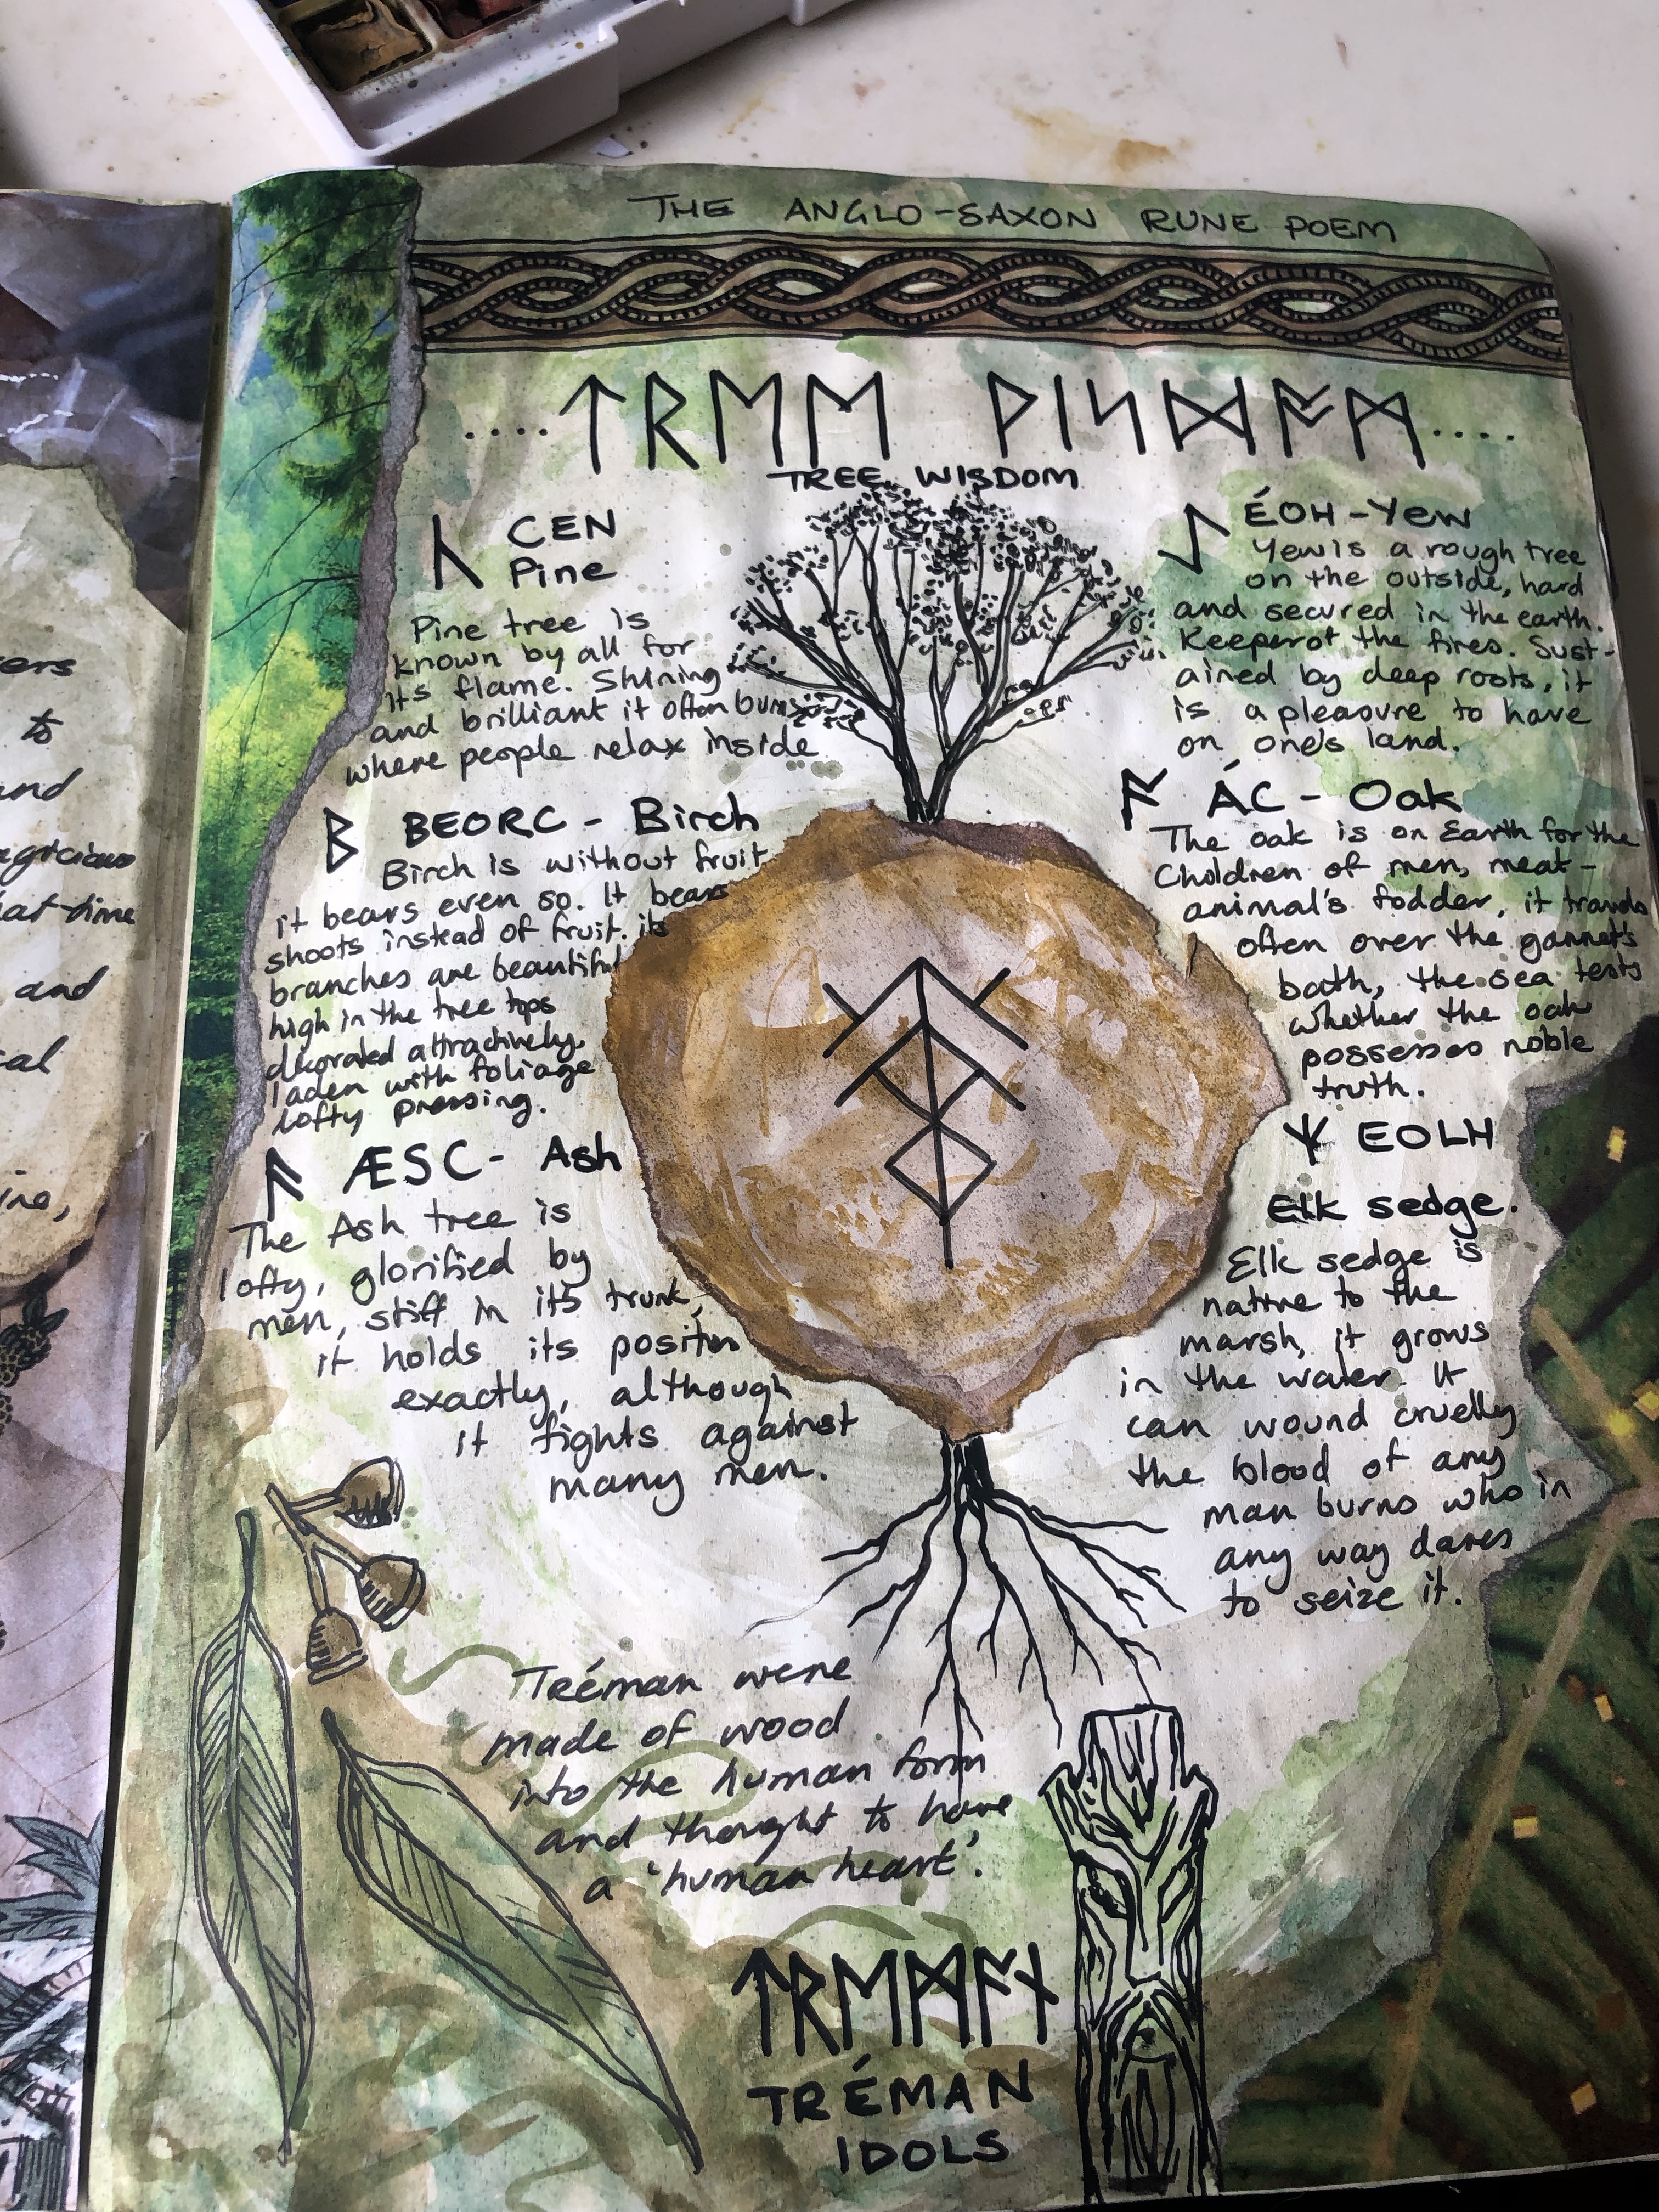 THE ANGLO-SAXON RUNE POEM
....ᛏᚱᛖᛖ ᚹᛁᛋᛞᚩᛗ....
TREE WISDOM
ᚳ CEN
Pine
Pine tree is
known by all for
its flame. Shining
and brilliant it often burns
where people relax inside
ᛒ BEORC - Birch
Birch is without fruit
it bears even so. It bears
shoots instead of fruit. its
branches are beautiful
high in the tree tops
decorated attractively
laden with foliage
lofty pressing.
ᚫ ÆSC - Ash
The Ash tree is
lofty, glorified by
men, stiff in its trunk,
it holds its position
exactly, although
it fights against
many men.
ᛇ ÉOH - Yew
Yew is a rough tree
on the outside, hard
and secured in the earth.
Keeper of the fires. Sust-
ained by deep roots, it
is a pleasure to have
on one's land.
ᚪ ÁC - Oak
The oak is on Earth for the
Children of men, meat-
animal's fodder, it travels
often over the gannet's
bath, the sea tests
whether the oak
possesses noble
truth.
ᛉ EOLH
Elk sedge.
Elk sedge is
native to the
marsh, it grows
in the water. It
can wound cruelly
the blood of any
man burns who in
any way dares
to seize it.
Tréman were
made of wood
into the human form
and thought to have
a 'human heart'.
ᛏᚱᛖᛗᚪᚾ
TRÉMAN
IDOLS
ers
to
and
agicious
hat time
and
cal
ine,